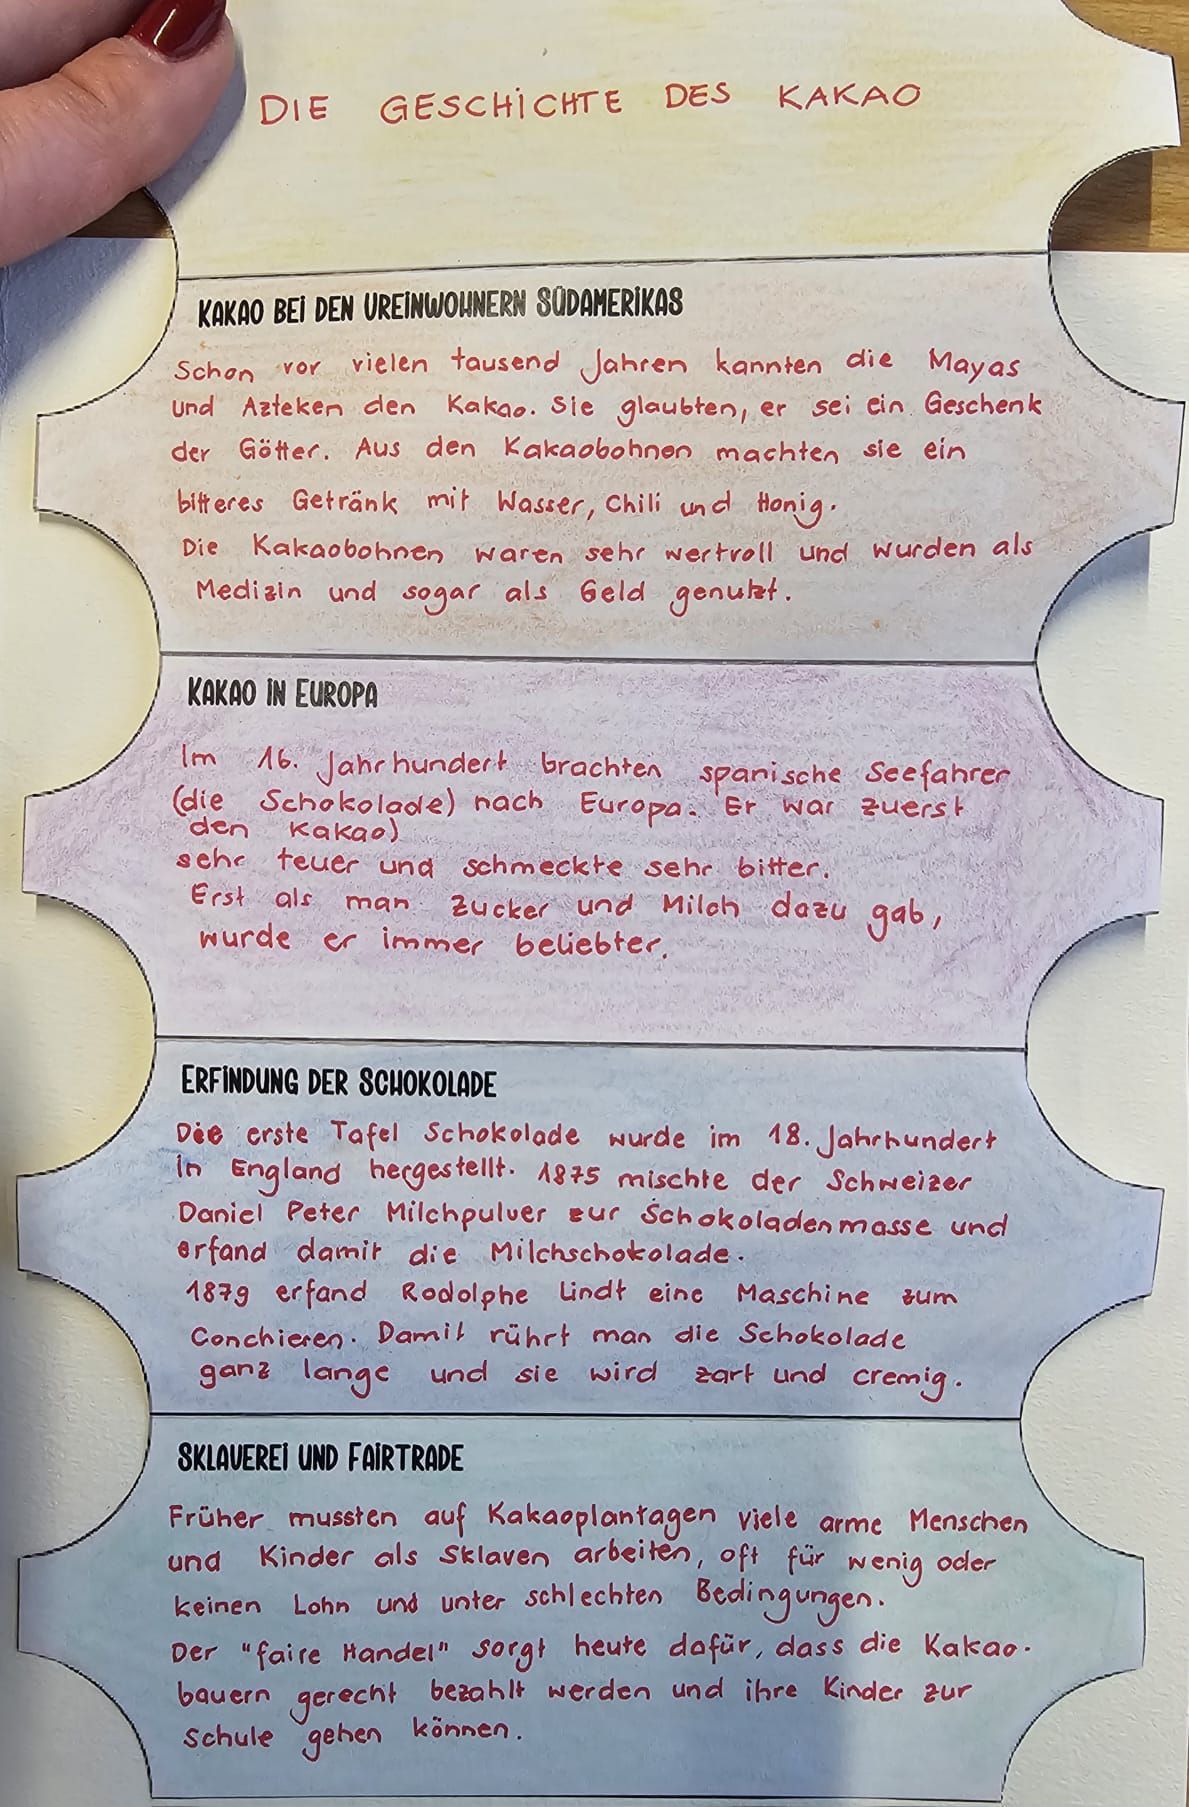 DIE GESCHICHTE DES KAKAO
KAKAO BEI DEN UREINWOHNERN SÜDAMERIKAS
Schon vor vielen tausend Jahren kannten die Mayas
und Azteken den Kakao. Sie glaubten, er sei ein Geschenk
der Götter. Aus den Kakaobohnen machten sie ein
bitteres Getränk mit Wasser, Chili und Honig.
Die Kakaobohnen waren sehr wertvoll und wurden als
Medizin und sogar als Geld genutzt.
KAKAO IN EUROPA
Im 16. Jahrhundert brachten spanische Seefahrer
(die Schokolade) nach Europa. Er war zuerst
den Kakao)
sehr teuer und schmeckte sehr bitter.
Erst als man Zucker und Milch dazu gab,
wurde er immer beliebter.
ERFINDUNG DER SCHOKOLADE
Die erste Tafel Schokolade wurde im 18. Jahrhundert
in England hergestellt. 1875 mischte der Schweizer
Daniel Peter Milchpulver zur Schokoladenmasse und
erfand damit die Milchschokolade.
1879 erfand Rodolphe Lindt eine Maschine zum
Conchieren. Damit rührt man die Schokolade
ganz lange und sie wird zart und cremig.
SKLAVEREI UND FAIRTRADE
Früher mussten auf Kakaoplantagen viele arme Menschen
und Kinder als Sklaven arbeiten, oft für wenig oder
keinen Lohn und unter schlechten Bedingungen.
Der "faire Handel" sorgt heute dafür, dass die Kakao-
bauern gerecht bezahlt werden und ihre Kinder zur
Schule gehen können.